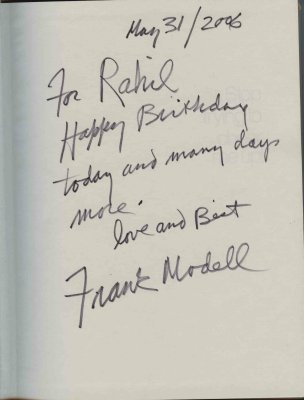 May 31/2006
For Rahil
Happy Birthday
today and many days
more.
love and Best
Frank Modell